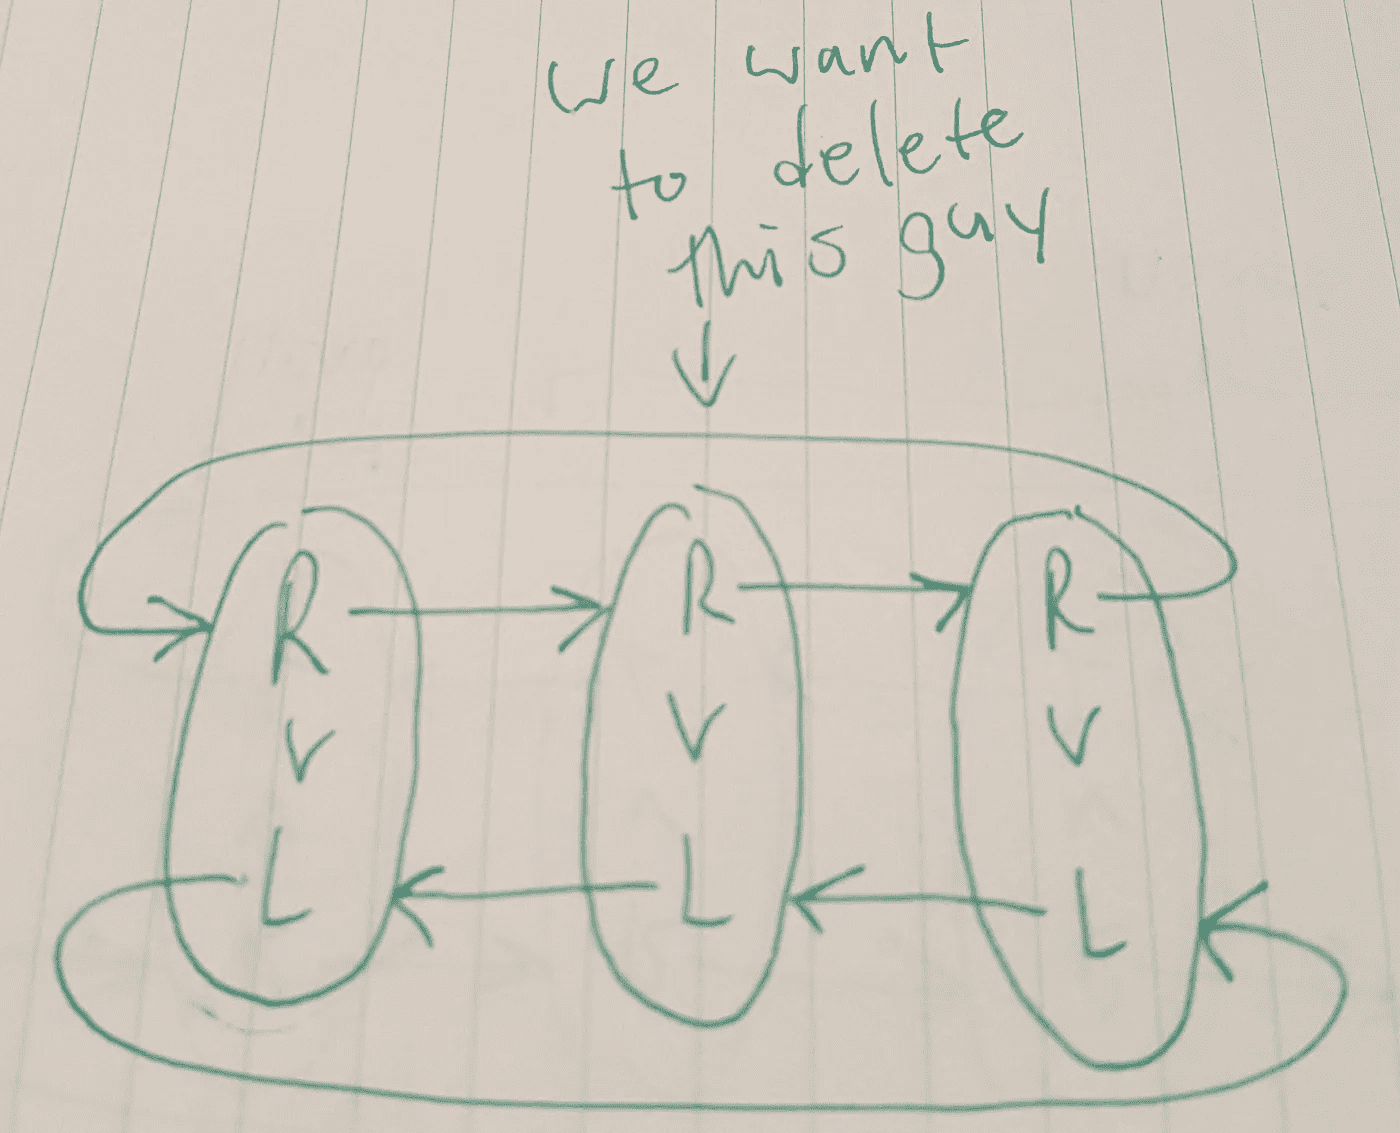 we want
to delete
this guy
R R R
V V V
L L L